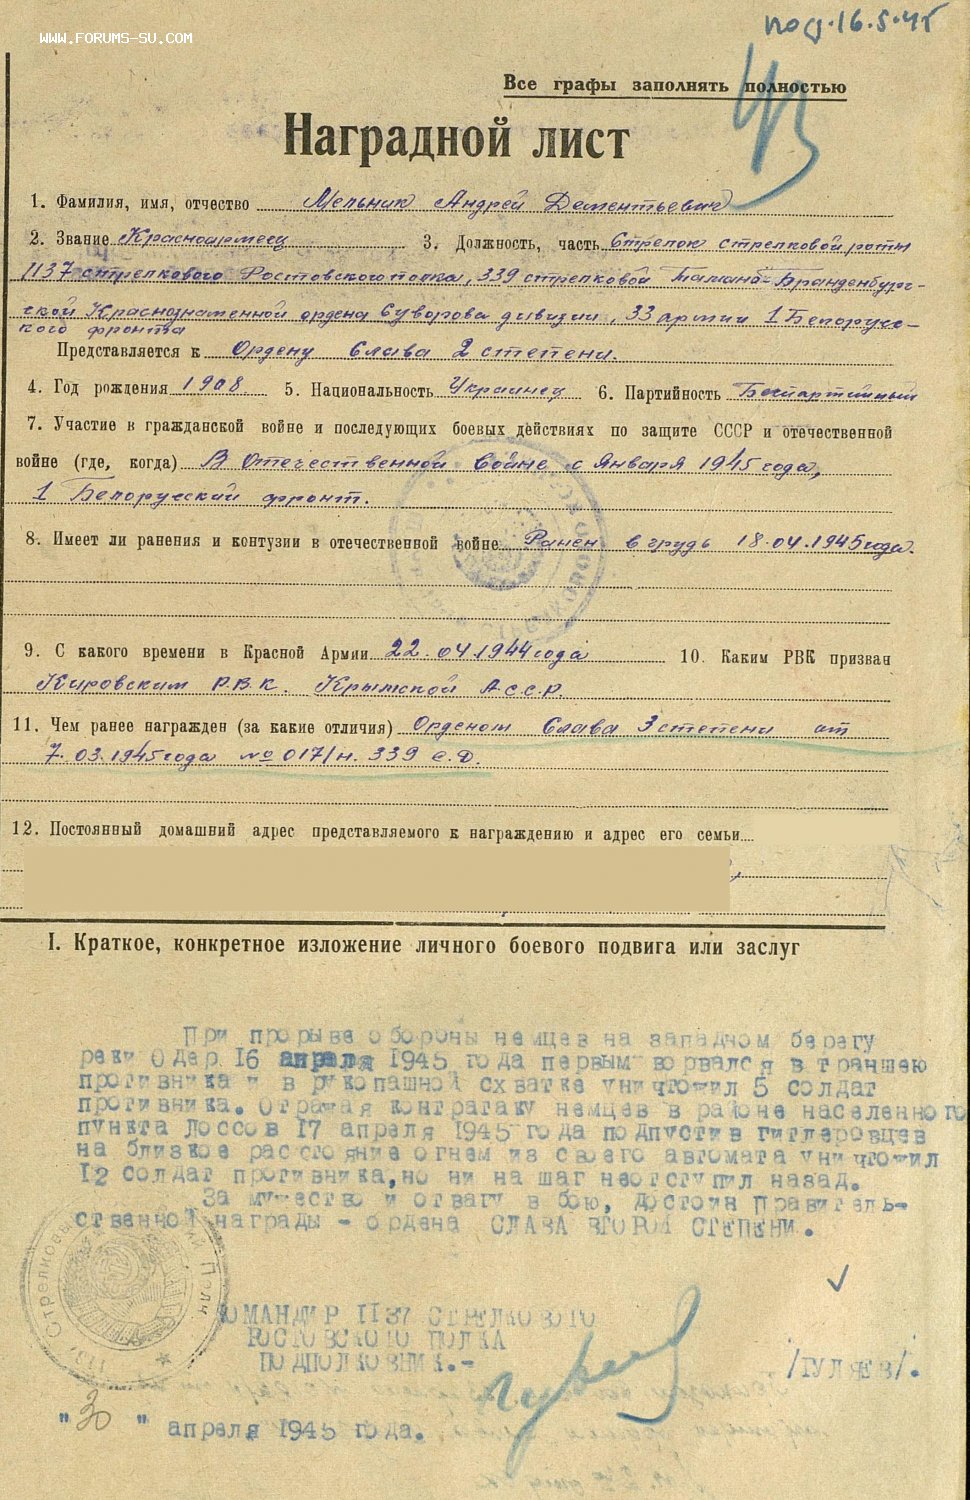 WWW.FORUMS-SU.COM
16.5.45
Все графы заполнять полностью
Наградной лист
1. Фамилия, имя, отчество Мельник Андрей Дементьевич
2. Звание Красноармеец 3. Должность, часть Стрелок стрелковой роты
1137 стрелкового Ростовского полка, 339 стрелковой Тамано-Бранденбург-
ской Краснознаменной ордена Суворова дивизии, 33 армии 1 Белорус-
кого фронта
Представляется к Ордену Слава 2 степени.
4. Год рождения 1908. 5. Национальность Украинец 6. Партийность Беспартийный
7. Участие в гражданской войне и последующих боевых действиях по защите СССР и отечественной
войне (где, когда) В Отечественной войне с января 1945 года,
1 Белорусский фронт.
8. Имеет ли ранения и контузии в отечественной войне Ранен в грудь 18.04.1945 года.
9. С какого времени в Красной Армии 22.04.1944 года 10. Каким РВК призван
Кировским Р.В.К. Крымской А.С.С.Р.
11. Чем ранее награжден (за какие отличия) Орденом Слава 3 степени от
7.03.1945 года № 017/н. 339 с.д.
12. Постоянный домашний адрес представляемого к награждению и адрес его семьи
I. Краткое, конкретное изложение личного боевого подвига или заслуг
При прорыве обороны немцев на западном берегу
реки Одер 16 апреля 1945 года первым ворвался в траншею
противника и в рукопашной схватке уничтожил 5 солдат
противника. Отражая контратаку немцев в районе населенного
пункта Лоссов 17 апреля 1945 года подпустив гитлеровцев
на близкое расстояние огнем из своего автомата уничтожил
12 солдат противника, но ни на шаг не отступил назад.
За мужество и отвагу в бою, достоин правитель-
ственной награды - ордена СЛАВА ВТОРОЙ СТЕПЕНИ.
КОМАНДИР 1137 СТРЕЛКОВОГО
РОСТОВСКОГО ПОЛКА
ПОДПОЛКОВНИК.- /ГУЛЯЕВ/.
"30" апреля 1945 года.